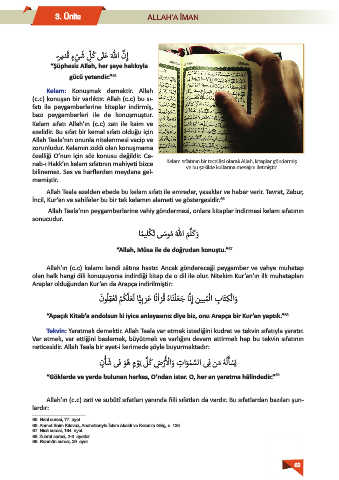 3. Ünite
ALLAH'A İMAN
إِنَّ اللّٰهَ عَلٰى كُلِّ شَيْءٍ قَد۪يرٌ
"Şüphesiz Allah, her şeye hakkıyla
gücü yetendir."
Kelam: Konuşmak demektir. Allah
(c.c) konuşan bir varlıktır. Allah (c.c) bu sı-
fatı ile peygamberlerine kitaplar indirmiş,
bazı peygamberleri ile de konuşmuştur.
Kelam sıfatı Allah'ın (c.c) zatı ile kaim ve
ezelidir. Bu sıfat bir kemal sıfatı olduğu için
Allah Teala'nın onunla nitelenmesi vacip ve
zorunludur. Kelamın zıddı olan konuşmama
özelliği O'nun için söz konusu değildir. Ce-
nab-ı Hakk'ın kelam sıfatının mahiyeti bizce
bilinemez. Ses ve harflerden meydana gel-
memiştir.
Kelam sıfatının bir tecellisi olarak Allah, kitaplar göndermiş
ve bu şekilde kullarına mesajını iletmiştir
Allah Teala ezelden ebede bu kelam sıfatı ile emreder, yasaklar ve haber verir. Tevrat, Zebur,
İncil, Kur'an ve sahifeler bu bir tek kelamın alameti ve göstergesidir.
Allah Teala'nın peygamberlerine vahiy göndermesi, onlara kitaplar indirmesi kelam sıfatının
sonucudur.
وَكَلَّمَ اللّٰهُ مُوسٰى تَكْل۪يمًا
"Allah, Mûsa ile de doğrudan konuştu."
Allah'ın (c.c) kelamı kendi zâtına hastır. Ancak göndereceği peygamber ve vahye muhatap
olan halk hangi dili konuşuyorsa indirdiği kitap da o dil ile olur. Nitekim Kur'an'ın ilk muhatapları
Araplar olduğundan Kur'an da Arapça indirilmiştir:
وَالْكِتَابِ الْمُب۪ينِ إِنَّا جَعَلْنَاهُ قُرْآنًا عَرَبِيًّا لَعَلَّكُمْ تَعْقِلُونَ
"Apaçık Kitab'a andolsun ki iyice anlayasınız diye biz, onu Arapça bir Kur'an yaptık."
Tekvin: Yaratmak demektir. Allah Teala var etmek istediğini kudret ve tekvin sıfatıyla yaratır.
Var etmek, var ettiğini beslemek, büyütmek ve varlığını devam ettirmek hep bu tekvin sıfatının
neticesidir. Allah Teala bir ayet-i kerimede şöyle buyurmaktadır:
يَسْأَلُهُ مَنْ فِي السَّمٰوَاتِ وَالْأَرْضِ كُلَّ يَوْمٍ هُوَ ف۪ي شَأْنٍ
"Göklerde ve yerde bulunan herkes, O'ndan ister. O, her an yaratma hâlindedir."
Allah'ın (c.c) zati ve subûtî sıfatları yanında fiilî sıfatları da vardır. Bu sıfatlardan bazıları şun-
lardır: